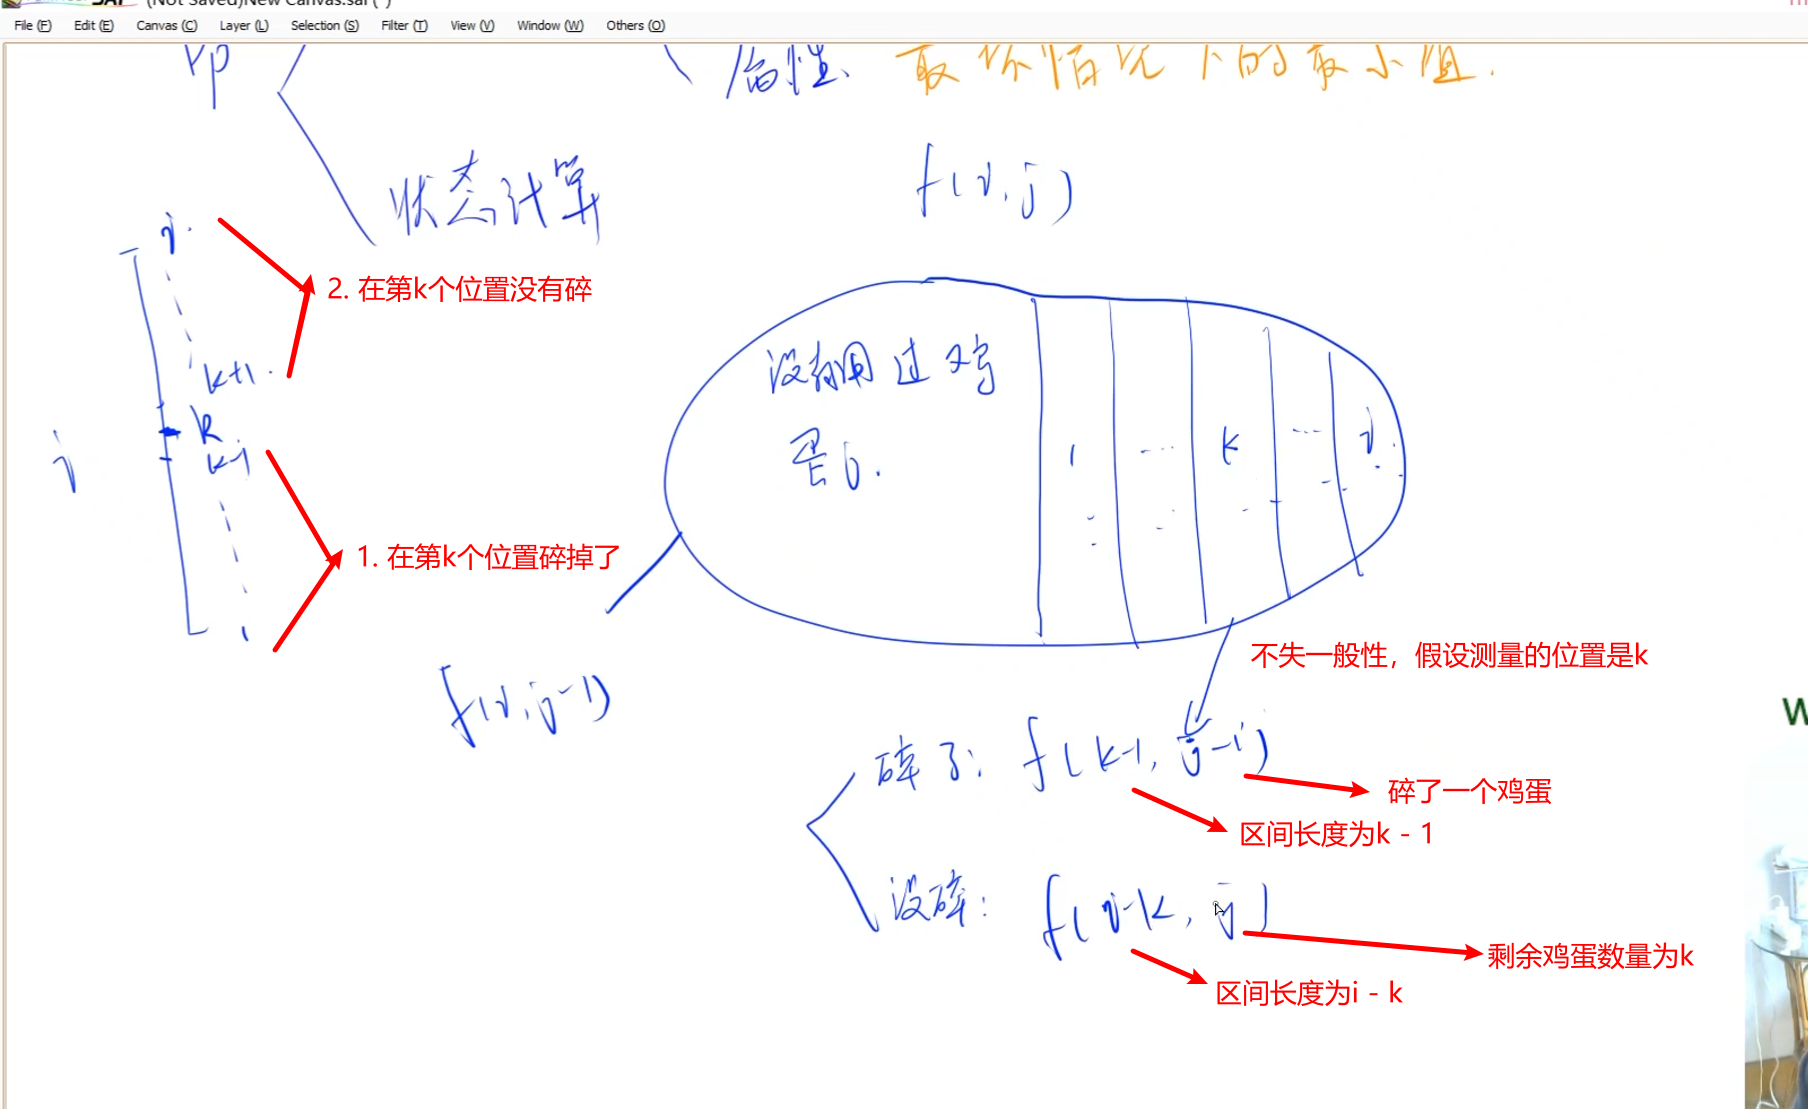 (Not Saved)New Canvas.sai (*)
File (F) Edit (E) Canvas (C) Layer (L) Selection (S) Filter (T) View (V) Window (W) Others (O)
属性、 最坏情况下的最小值.
f(i,j)
状态计算
i.
2. 在第k个位置没有碎
k+1.
k
k-1
i
1
1. 在第k个位置碎掉了
没有用过鸡
蛋j.
1 ... k ... i.
f(i,j-1)
不失一般性，假设测量的位置是k
碎了: f(k-1, j-1)
碎了一个鸡蛋
区间长度为k - 1
没碎: f(i-k, j)
剩余鸡蛋数量为k
区间长度为i - k
W